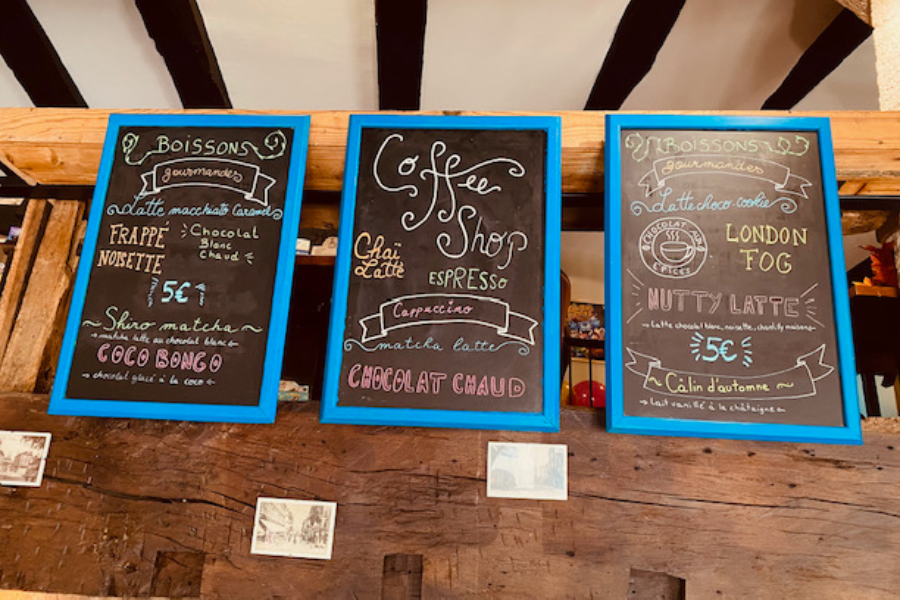 BOISSONS
gourmandes
Latte macchiato Caramel
FRAPPÉ
NOISETTE
Chocolat
Blanc
Chaud
5€
Shiro matcha
→ matcha latte au chocolat blanc ←
COCO BONGO
→ chocolat glacé à la coco ←
Coffee
Shop
Chaï
Latte
ESPRESSO
Cappuccino
matcha latte
CHOCOLAT CHAUD
BOISSONS
gourmandes
Latte choco-cookie
CHOCOLAT AUX
ÉPICES
LONDON
FOG
NUTTY LATTE
→ Latte chocolat blanc, noisette, chantilly maison ←
5€
Câlin d'automne
→ Lait vanillé à la châtaigne ←